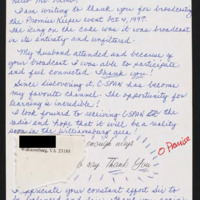 Hello Mr. Lamb,
I am writing to thank you for broadcasting
the Promise Keeper event Oct 4, 1997.
The icing on the cake was it was broadcast
in its entirety and unedited.
My husband attended and because of
your broadcast I was able to participate
and feel connected. Thank you!
Since discovering C-SPAN has become
my favourite channel. The opportunity for
learning is incredible!
I look forward to receiving C-SPAN
radio and hope that it will be reality
soon in the Williamsburg area!
enough ways
Williamsburg, VA 23188
to say Thank You
I appreciate your constant effort